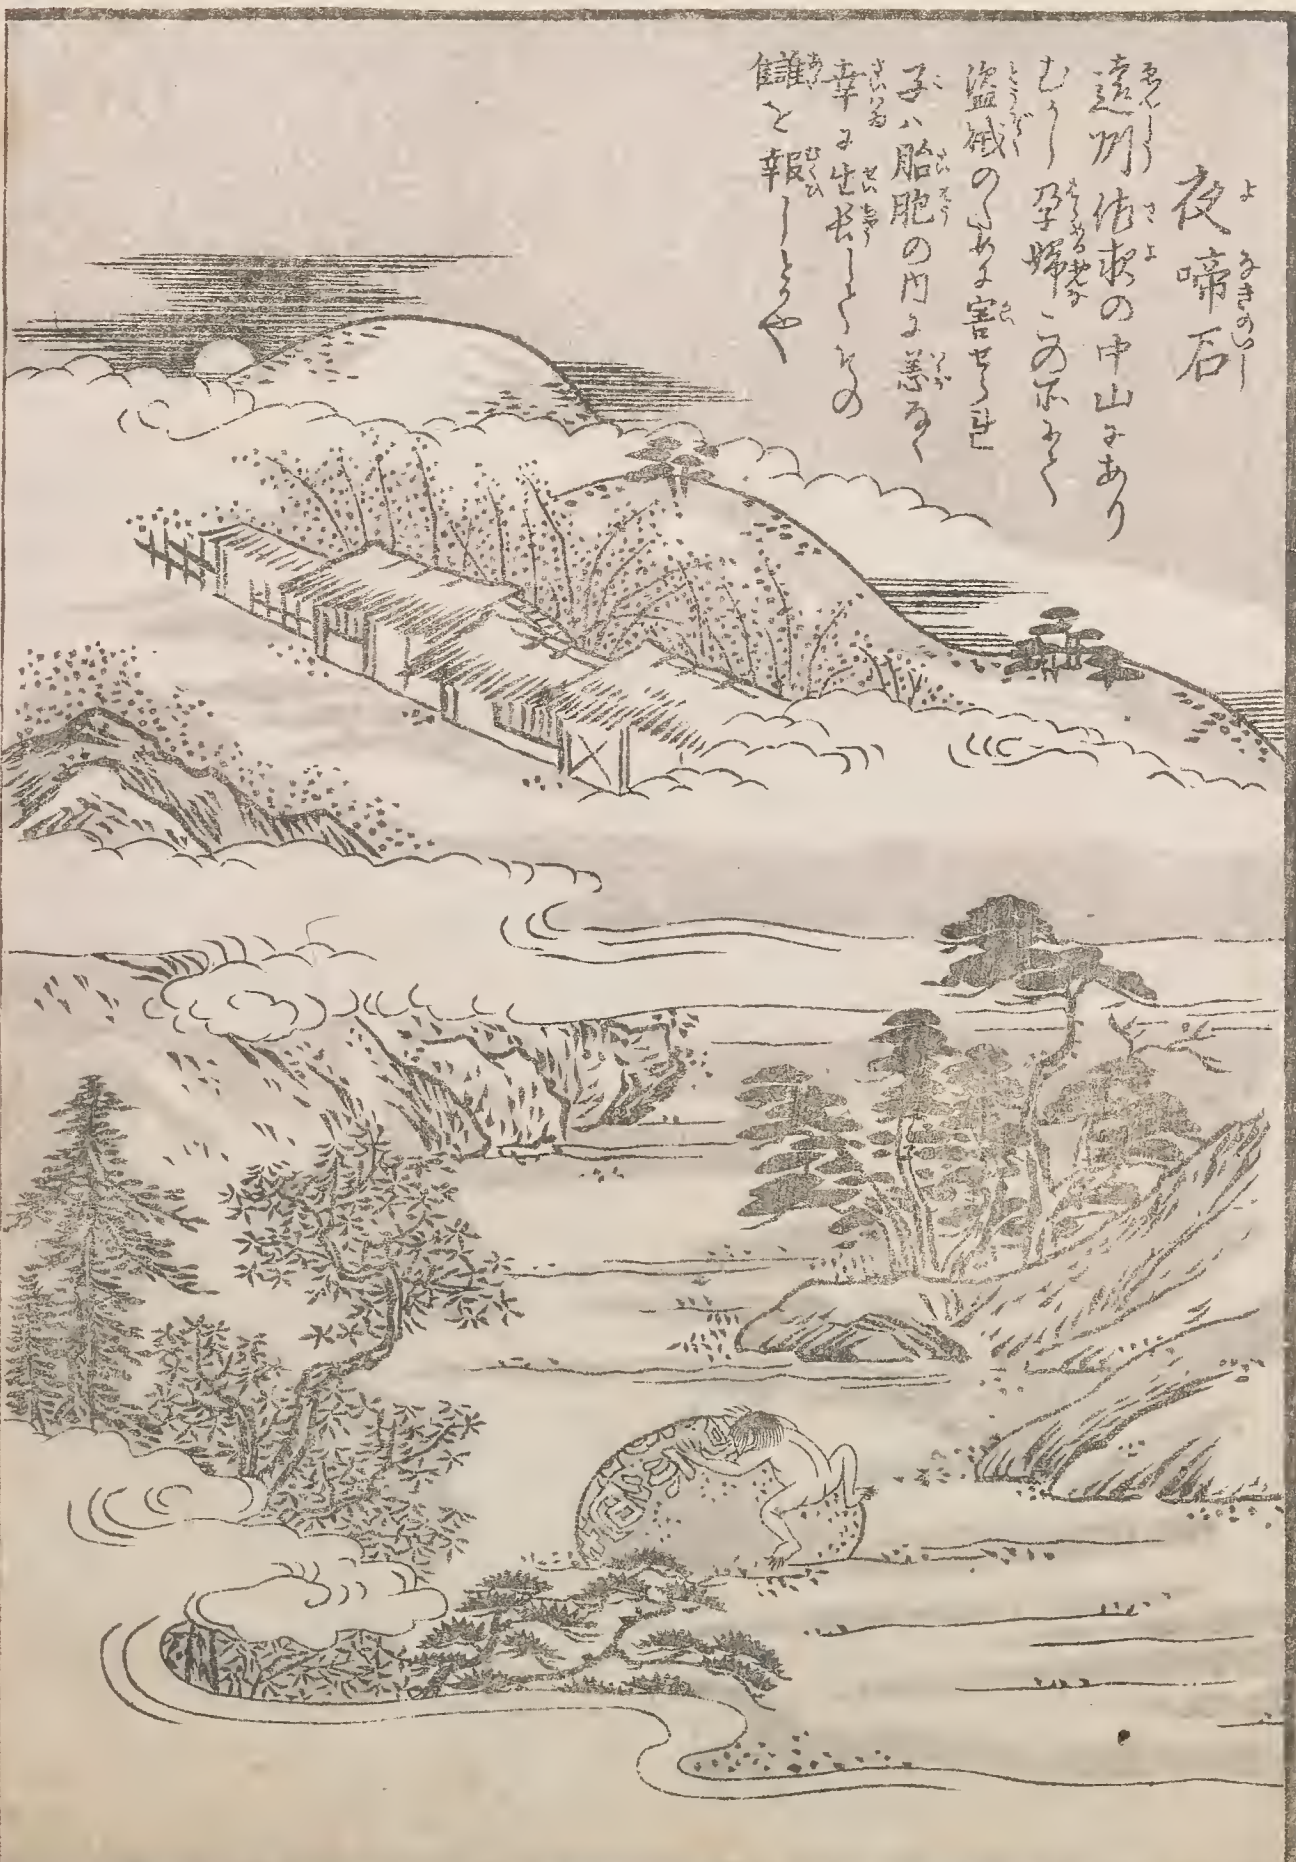 夜啼石
遠州佐夜の中山にあり
むかし孕婦この所にて
盗賊のために害せられ
子ハ胎胞の内に恙なく
幸に生長してその
讎を報しとかや